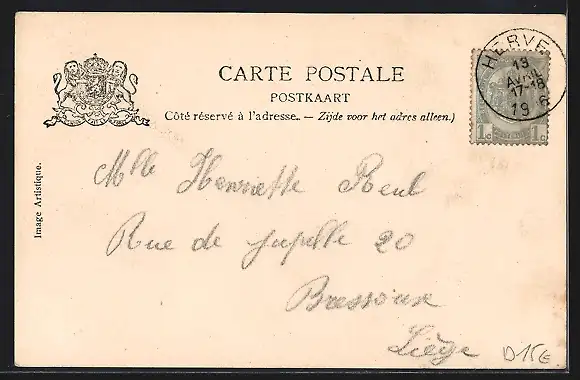 CARTE POSTALE
POSTKAART
Côté réservé à l'adresse. — Zijde voor het adres alleen.)
HERVE
13
AVRIL
17-18
19
1c 1c
Image Artistique.
Mlle Henriette Reul
Rue de Jupille 20
Bressoux
Liége
D15€